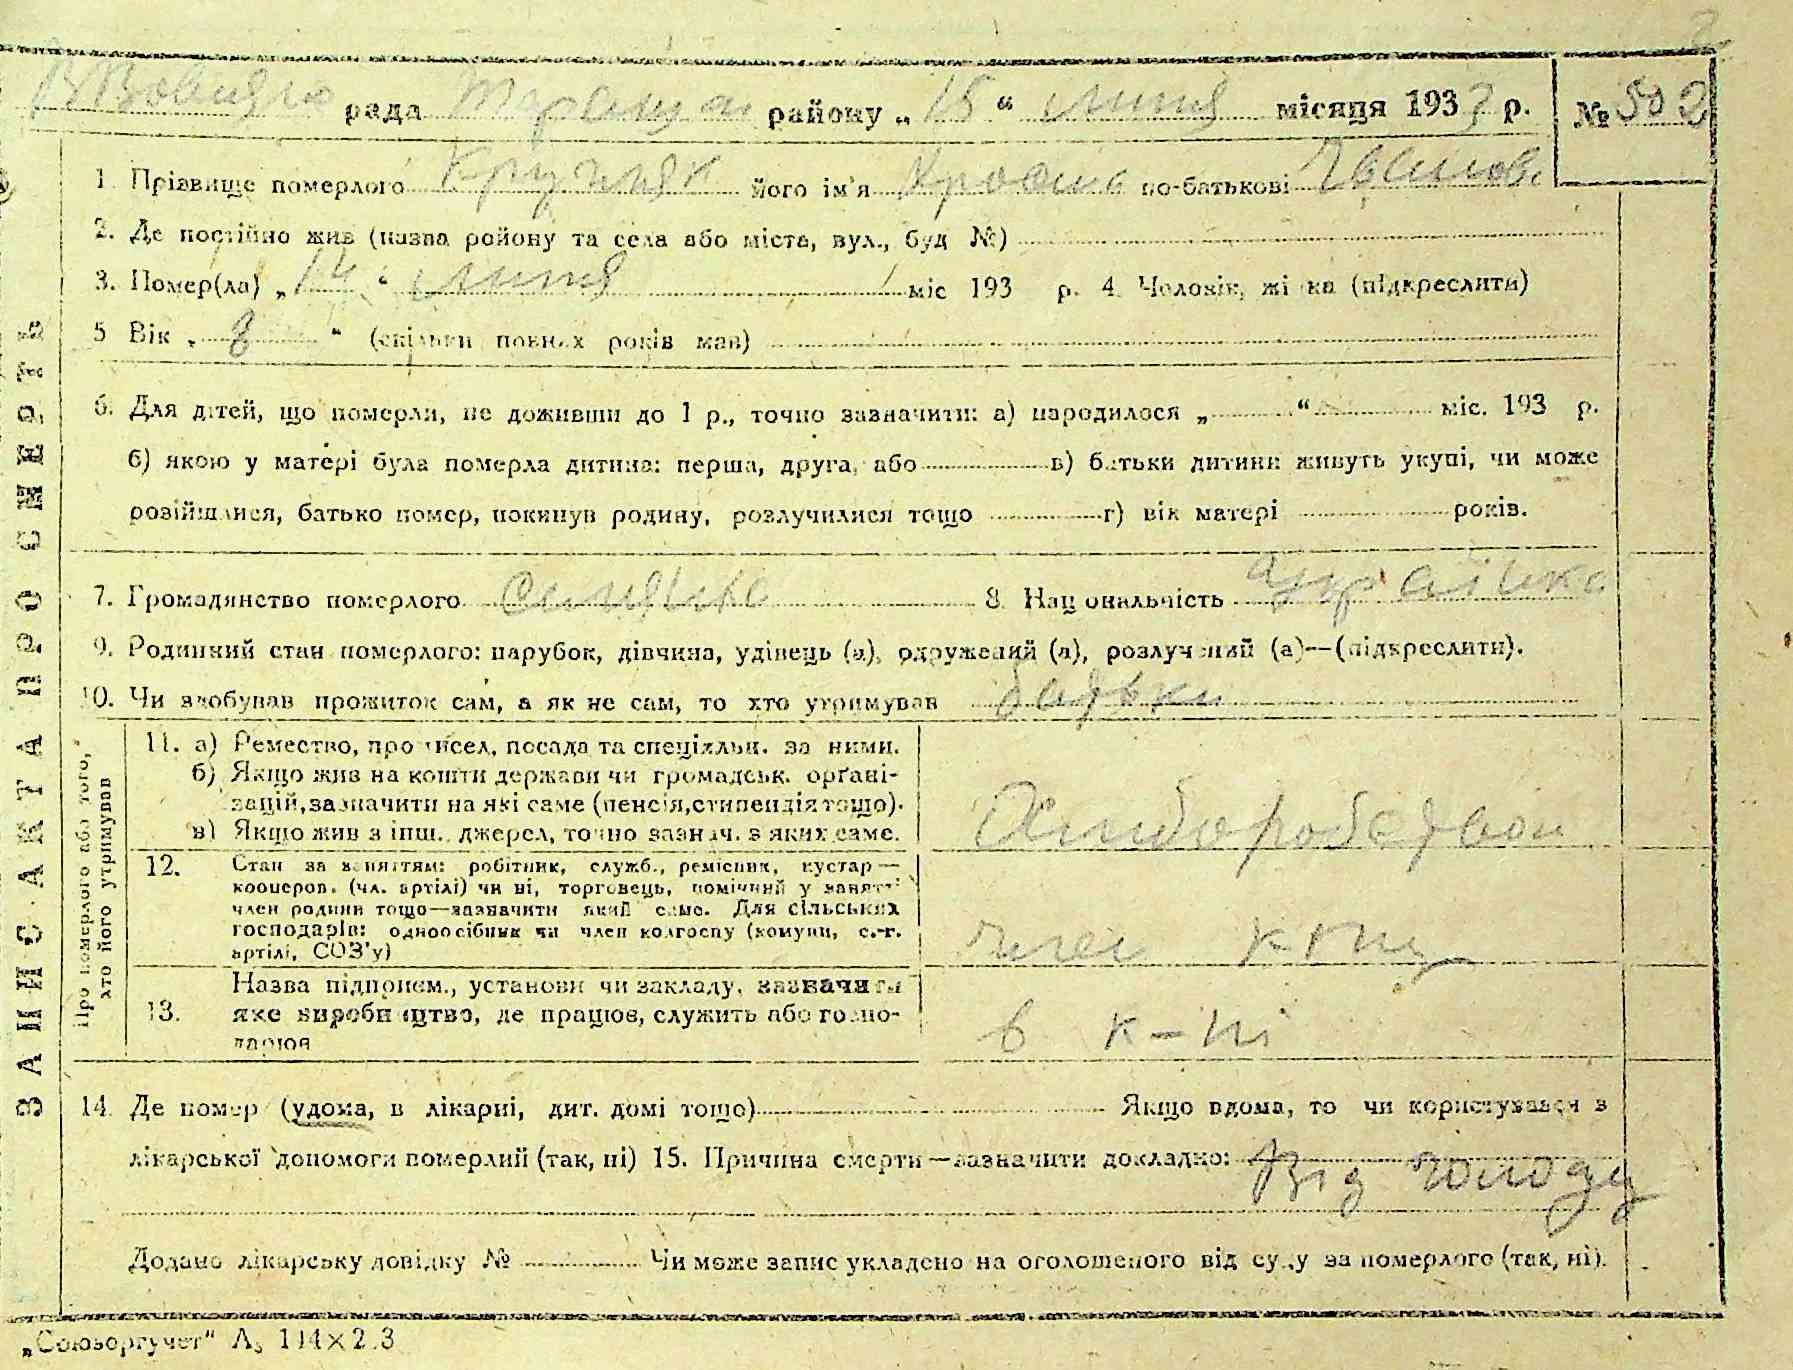 рада районy „ 15 “ липня місяця 1933 р. № 502
1. Прізвище померлого його ім'я по-батькові
2. Де постійно жив (назва району та села або міста, вул., буд №)
3. Помер(ла) „ 14 “ липня міс 193 р. 4. Чоловік, жінка (підкреслити)
5 Вік „ 8 “ (скільки повних років мав)
6. Для дітей, що померли, не доживши до 1 р., точно зазначити: а) народилося „ “ міс. 193 р.
б) якою у матері була померла дитина: перша, друга, або в) батьки дитини живуть укупі, чи може
розійшлися, батько помер, покинув родину, розлучилися тощо г) вік матері років.
7. Громадянство померлого 8. Національність
9. Родинний стан померлого: парубок, дівчина, удівець (а), одружений (а), розлучений (а)—(підкреслити).
10. Чи здобував прожиток сам, а як не сам, то хто утримував батьки
ЗАПИС АКТА ПРО СМЕРТЬ
Про померлого або того, хто його утримував
11. а) Ремество, промисел, посада та спеціяльн. за ними.
б) Якщо жив на кошти держави чи громадськ. орґані-
зацій, зазначити на які саме (пенсія, стипендія тощо).
в) Якщо жив з інш. джерел, точно зазнач. з яких саме.
12. Стан за заняттям: робітник, служб., ремісник, кустар—
кооперов. (чл. артілі) чи ні, торговець, помічний у занятті
член родини тощо—зазначити який саме. Для сільських
господарів: одноосібник чи член колгоспу (комуни, с.-г.
артілі, СОЗ'у)
13. Назва підприєм., установи чи закладу, зазначити
яке виробництво, де працює, служить або госпо-
дарює
в к-пі
14. Де помер (удома, в лікарні, дит. домі тощо) Якщо вдома, то чи користувався з
лікарської допомоги померлий (так, ні) 15. Причина смерти—зазначити докладно: Від голоду
Додано лікарську довідку № Чи може запис укладено на оголошеного від суду за померлого (так, ні).
„Союзоргучет“ А₅ 114×2.3